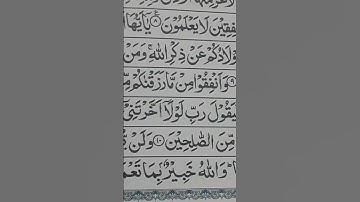 فِقِيْنَ لَا يَعْلَمُوْنَ ۝۸ يٰۤاَيُّهَا
وْلَادُكُمْ عَنْ ذِكْرِ اللّٰهِ ۚ وَمَنْ
۝۹ وَاَنْفِقُوْا مِنْ مَّا رَزَقْنٰكُمْ مِّ
يَقُوْلَ رَبِّ لَوْلَاۤ اَخَّرْتَنِيْۤ
مِّنَ الصّٰلِحِيْنَ ۝۱۰ وَلَنْ
وَاللّٰهُ خَبِيْرٌۢ بِمَا تَعْمَ